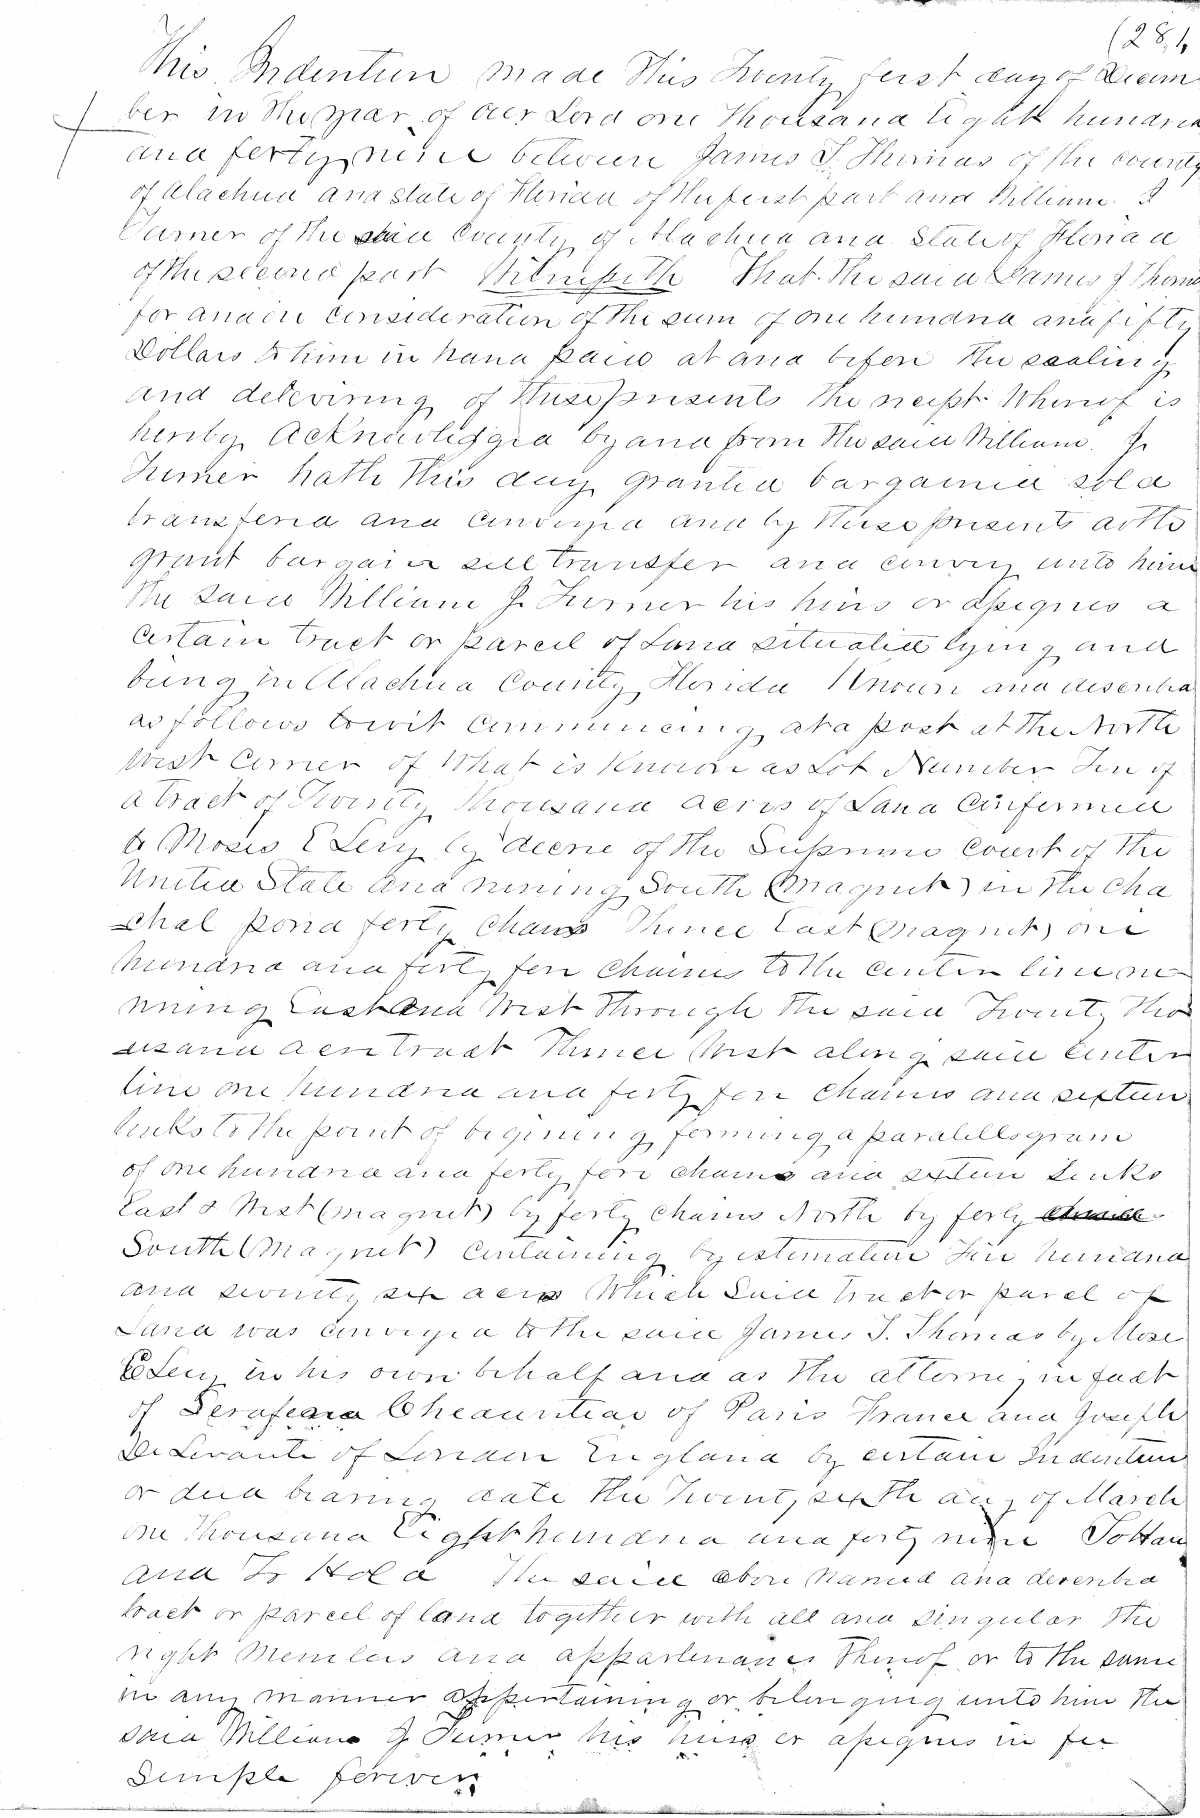 (281
This Indenture made this Twenty first day of Decem
ber in the year of our Lord one thousand Eight hundred
and forty nine between James T. Thomas of the county
of Alachua and state of Florida of the first part and William J
Turner of the said County of Alachua and State of Florida
of the second part Witnesseth That the said James T Thomas
for and in consideration of the sum of one hundred and fifty
Dollars to him in hand paid at and before the sealing
and delivering of these presents the receipt Whereof is
hereby Acknowledged by and from the said William J.
Turner hath this day granted bargained sold
transfered and conveyed and by these presents doth
grant bargain sell transfer and convey unto him
the said William J. Turner his heirs or assignes a
certain tract or parcel of Land situated lying and
being in Alachua County, Florida Known and described
as follows towit commencing at a post at the North
west corner of What is Known as Lot Number Ten of
a tract of Twenty Thousand acres of Land Confirmed
to Moses E Levy by decree of the Supreme Court of the
United State and running South (magnet) in the Cha
chal pond forty chains Thence East (magnet) one
hundred and forty four chains to the center line ru
nning East and West through the said Twenty tho
usand acre tract Thence West along said center
line one hundred and forty four chains and sixteen
links to the point of begining forming a paralellogram
of one hundred and forty four chains and sixteen Links
East & West (magnet) by forty chains North by forty
South (Magnet) containing by estimation five hundred
and seventy six acres Which said tract or parcel of
Land was conveyed to the said James T. Thomas by Mose
E Levy in his own behalf and as the attorney in fact
of Cheauntiac of Paris France and Joseph
De Levante of London England by certain Indenture
or deed bearing date the Twenty sixth day of March
one thousand Eight hundred and forty nine To Have
and To Hold The said above named and described
tract or parcel of land together with all and singular the
right Members and appartenances thereof or to the same
in any manner appertaining or belonging unto him the
said William J Turner his heirs or assignes in fee
Simple forever